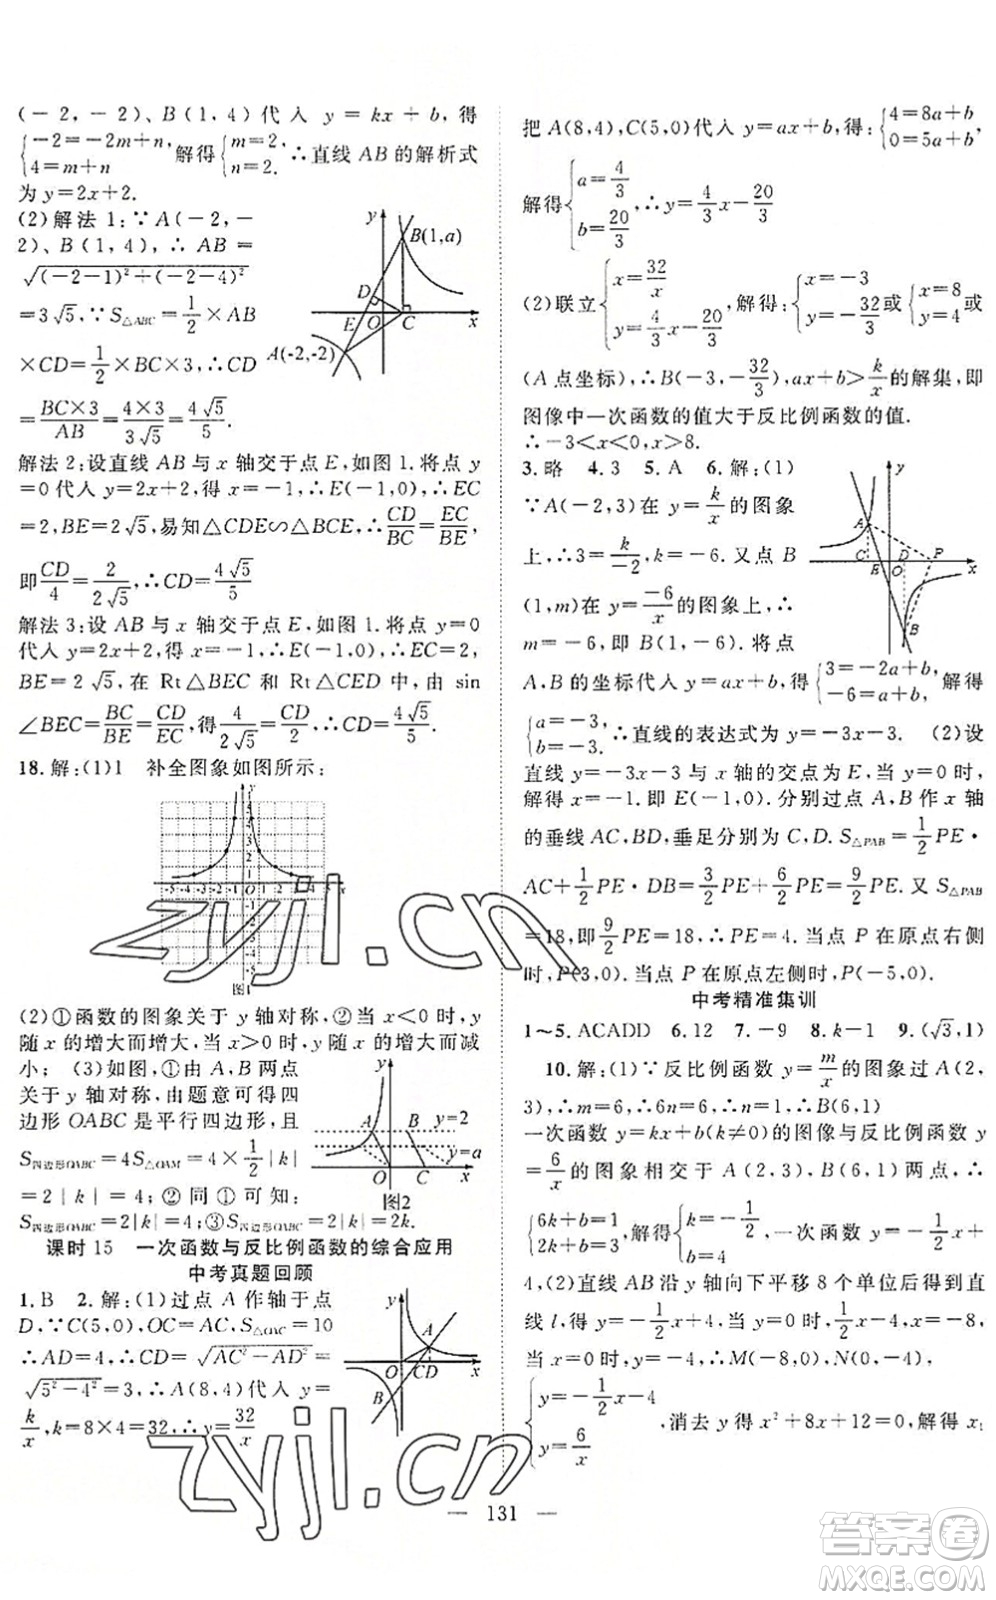 (－2，－2)、B(1，4)代入 y＝kx＋b，得
{－2＝－2m＋n, 4＝m＋n, 解得{m＝2, n＝2. ∴直线 AB 的解析式
为 y＝2x＋2.
(2)解法 1：∵A(－2，－
2)、B(1，4)，∴AB＝
√((－2－1)²＋(－2－4)²)
＝3√5，∵S△ABC＝1/2×AB
×CD＝1/2×BC×3，∴CD
＝BC×3/AB＝4×3/3√5＝4√5/5.
y
B(1,a)
D
E O C x
A(-2,-2)
解法 2：设直线 AB 与 x 轴交于点 E，如图 1. 将点 y
＝0 代入 y＝2x＋2，得 x＝－1，∴E(－1，0)，∴EC
＝2，BE＝2√5，易知△CDE∽△BCE，∴CD/BC＝EC/BE，
即CD/4＝2/2√5，∴CD＝4√5/5.
解法 3：设 AB 与 x 轴交于点 E，如图 1. 将点 y＝0
代入 y＝2x＋2，得 x＝－1，∴E(－1，0)，∴EC＝2，
BE＝2√5，在 Rt△BEC 和 Rt△CED 中，由 sin
∠BEC＝BC/BE＝CD/EC，得4/2√5＝CD/2，∴CD＝4√5/5.
18.解：(1)1 补全图象如图所示：
图1
(2)①函数的图象关于 y 轴对称，②当 x＜0 时，y
随 x 的增大而增大，当 x＞0 时，y 随 x 的增大而减
小； (3)如图，①由 A、B 两点
关于 y 轴对称，由题意可得四
边形 OABC 是平行四边形，且
S四边形OABC＝4S△OAM＝4×1/2|k|
＝2|k|＝4，②同①可知：
S四边形OABC＝2|k|＝4；③S四边形OABC＝2|k|＝2k.
y
A B y=2
y=a
O C x
图2
课时 15 一次函数与反比例函数的综合应用
中考真题回顾
1.B 2.解：(1)过点 A 作轴于点
D，∵C(5，0)，OC＝AC，S△OAC＝10
∴AD＝4，∴CD＝√(AC²－AD²)＝
√(5²－4²)＝3，∴A(8，4)代入 y＝
k/x，k＝8×4＝32，∴y＝32/x
y
A
O CD x
B
把 A(8，4)，C(5，0)代入 y＝ax＋b，得：{4＝8a＋b, 0＝5a＋b,
解得{a＝4/3, b＝20/3, ∴y＝4/3x－20/3
(2)联立{x＝32/x, y＝4/3x－20/3, 解得：{x＝－3, y＝－32/3或{x＝8, y＝4
(A 点坐标)，∴B(－3，－32/3)，ax＋b＞k/x的解集，即
图像中一次函数的值大于反比例函数的值.
∴－3＜x＜0，x＞8.
3.略 4.3 5.A 6.解：(1)
∵A(－2，3)在 y＝k/x的图象
上，∴3＝k/－2，k＝－6. 又点 B
(1，m)在 y＝－6/x的图象上，∴
m＝－6，即 B(1，－6). 将点
y
A
C E O D P x
B
A、B 的坐标代入 y＝ax＋b，得{3＝－2a＋b, －6＝a＋b, 解得
{a＝－3, b＝－3. ∴直线的表达式为 y＝－3x－3. (2)设
直线 y＝－3x－3 与 x 轴的交点为 E，当 y＝0 时，
解得 x＝－1. 即 E(－1，0). 分别过点 A，B 作 x 轴
的垂线 AC，BD，垂足分别为 C，D. S△PAB＝1/2PE·
AC＋1/2PE·DB＝3/2PE＋6/2PE＝9/2PE. 又 S△PAB
＝18，即9/2PE＝18，∴PE＝4. 当点 P 在原点右侧
时，P(3，0). 当点 P 在原点左侧时，P(－5，0).
中考精准集训
1～5. ACADD 6.12 7.－9 8.k－1 9.(√3，1)
10.解：(1)∵反比例函数 y＝m/x的图象过 A(2，
3)，∴m＝6，∴6n＝6，∴n＝1，∴B(6，1)
一次函数 y＝kx＋b(k≠0)的图像与反比例函数 y
＝6/x的图象相交于 A(2，3)，B(6，1)两点，∴
{6k＋b＝1, 2k＋b＝3, 解得{k＝－1/2, b＝4 ，一次函数 y＝－1/2x＋
4，(2)直线 AB 沿 y 轴向下平移 8 个单位后得到直
线 l，得 y＝－1/2x＋4－8＝－1/2x－4，当 y＝0，x＝－8，
当 x＝0，y＝－4，∴M(－8，0)，N(0，－4)，
{y＝－1/2x－4, y＝6/x ，消去 y 得 x²＋8x＋12＝0，解得 x₁
— 131 —
zyjl.cn
zyjl.cn
答案圈
MXQE.COM